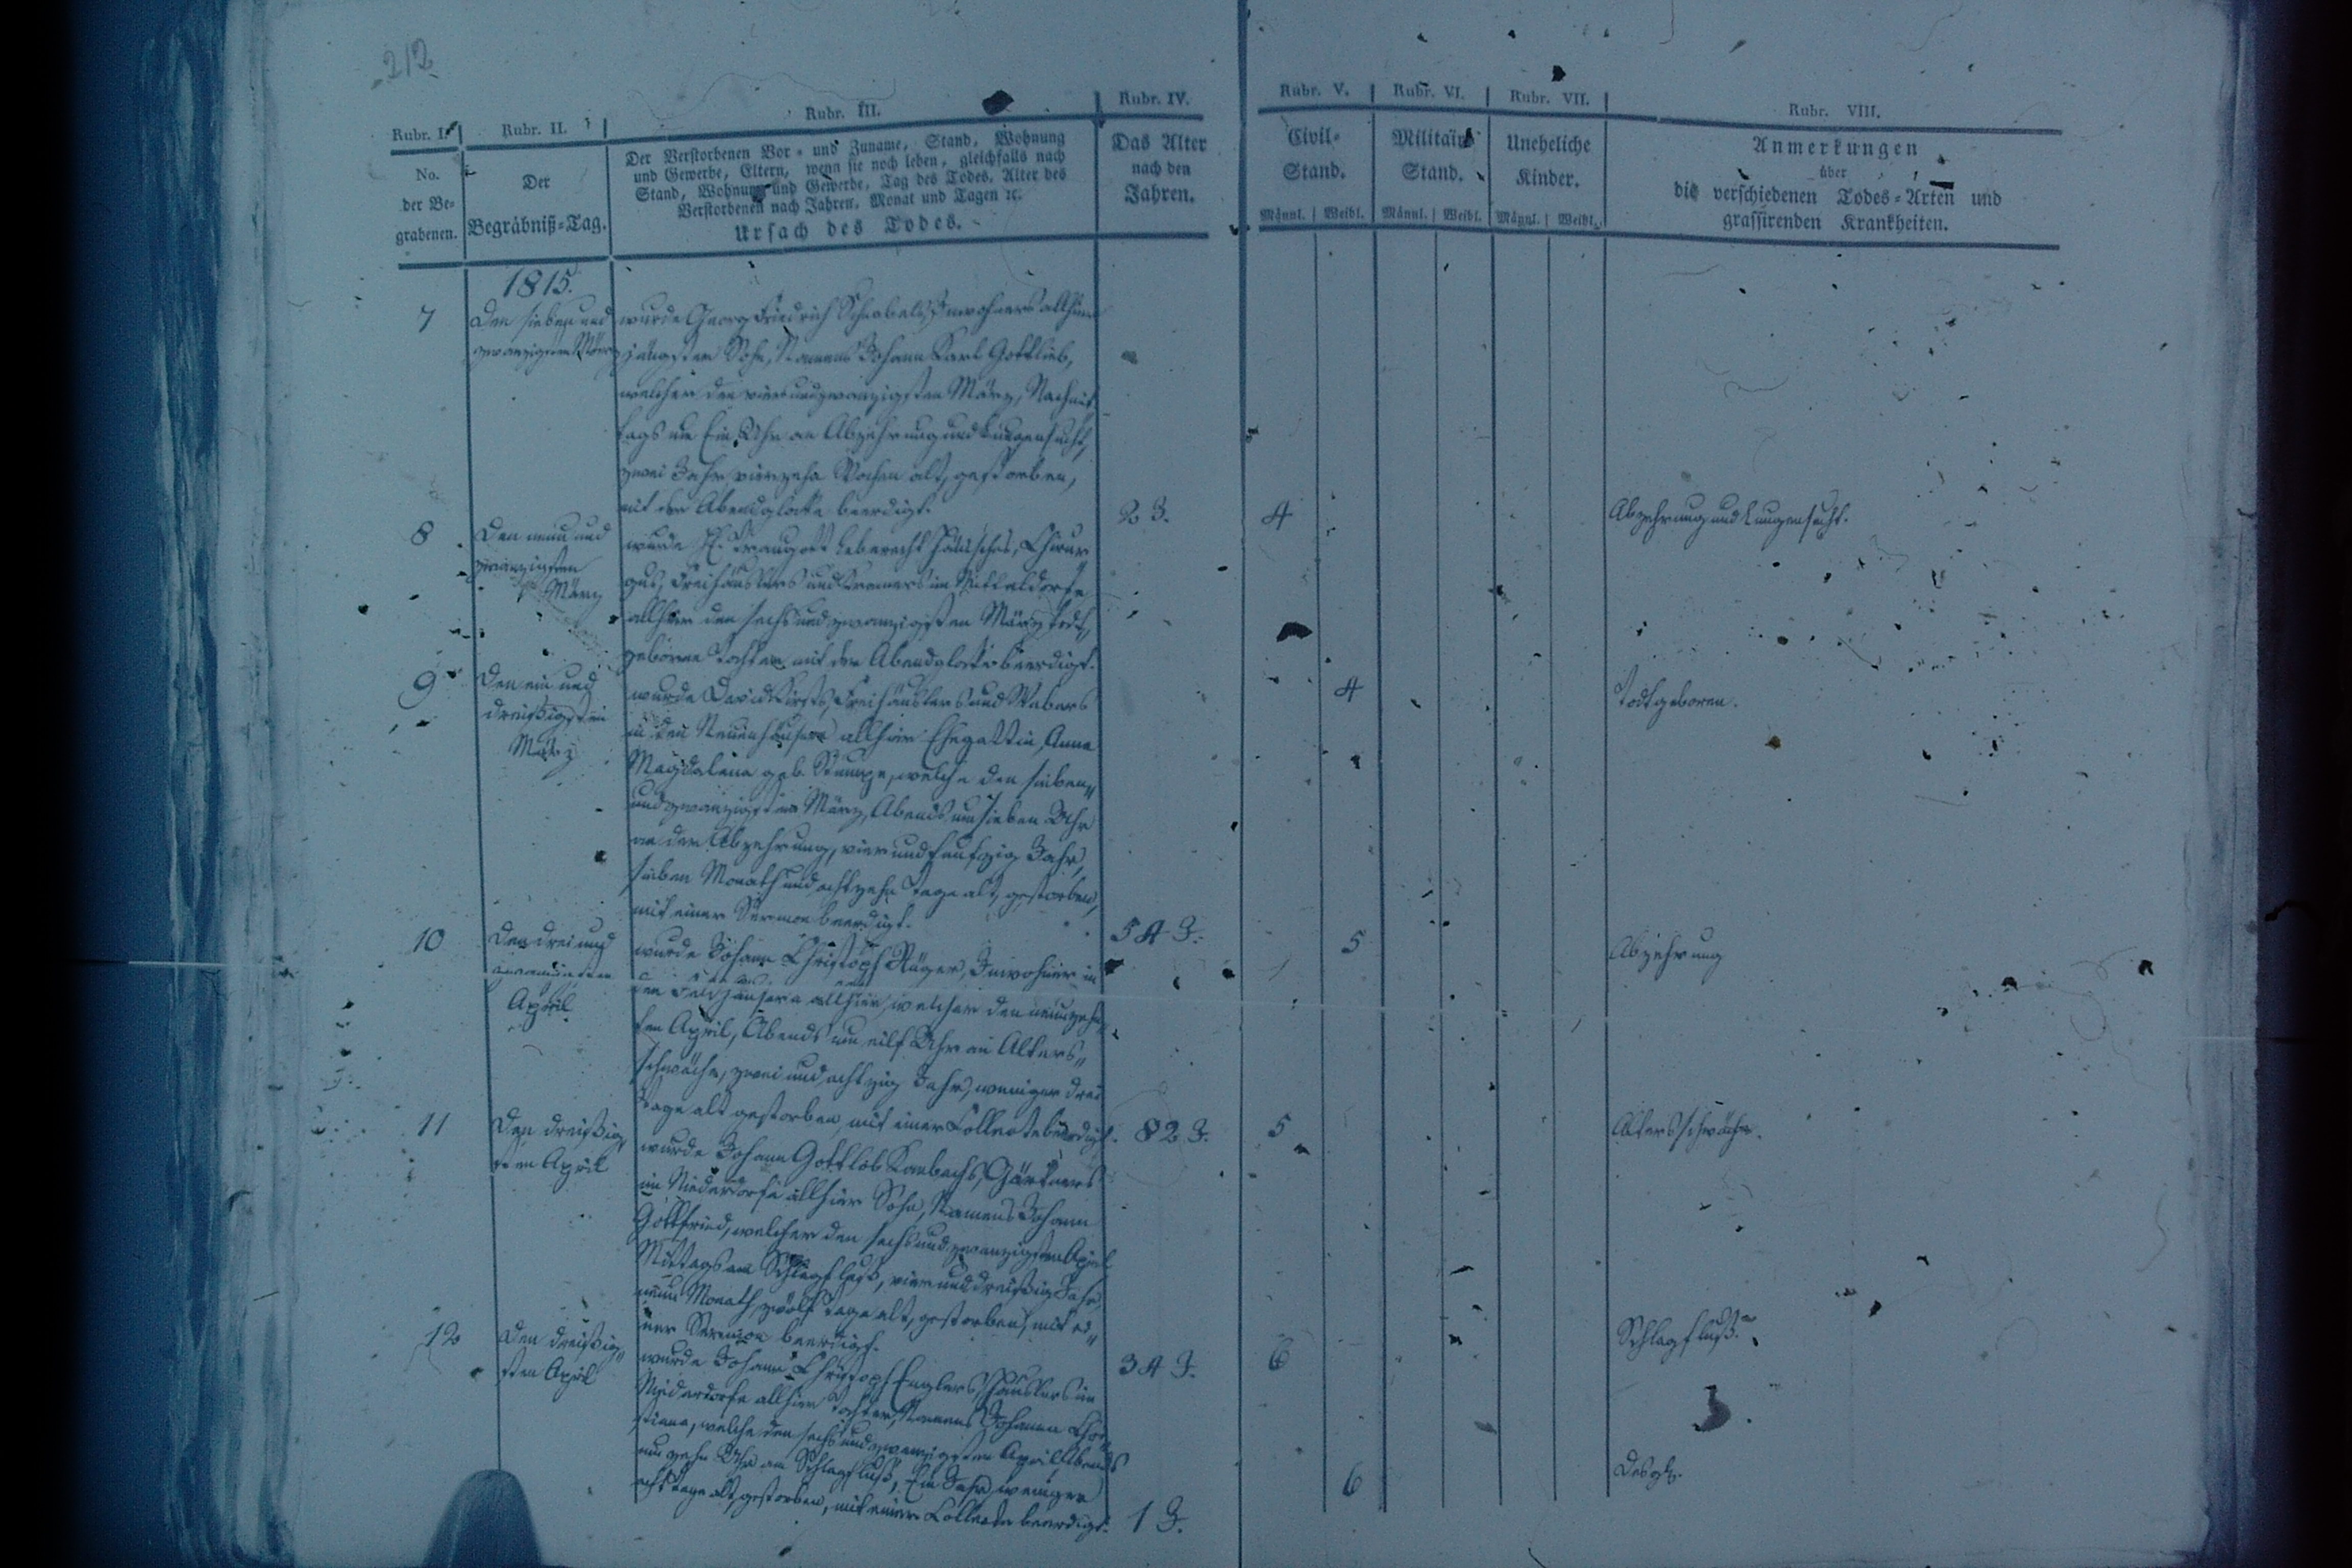 212
Rubr. I.
No.
der Be-
grabenen.
Rubr. II.
Der
Begräbniß-Tag.
Rubr. III.
Der Verstorbenen Vor- und Zuname, Stand, Wohnung
und Gewerbe, Eltern, wenn sie noch leben, gleichfalls nach
Stand, Wohnung und Gewerbe, Tag des Todes, Alter des
Verstorbenen nach Jahren, Monat und Tagen ꝛc.
Ursach des Todes.
Rubr. IV.
Das Alter
nach den
Jahren.
Rubr. V.
Civil-
Stand.
Männl. | Weibl.
Rubr. VI.
Militair
Stand.
Männl. | Weibl.
Rubr. VII.
Uneheliche
Kinder.
Männl. | Weibl.
Rubr. VIII.
Anmerkungen
über
die verschiedenen Todes-Arten und
grassirenden Krankheiten.
1815.
7
Den sieben und
zwanzigsten März
wurde Georg Friedrich Inwohners allhier
jüngster Sohn, Namens Johann Karl Gottlieb,
welcher den vierundzwanzigsten März, Nachmit
tags um Ein Uhr an Abzehrung und Lungensucht,
zwei Jahr vierzehn Wochen alt, gestorben,
mit der Abendglocke beerdigt.
2 J.
4
Abzehrung und Lungensucht.
8
Den neun und
zwanzigsten
März
wurde H. Traugott Leberecht Chirur
gus, Freihäuslers und Kramers im Mitteldorfe
allhier den sechsundzwanzigsten März todt
geborne Tochter mit der Abendglocke beerdigt.
4
Todtgeboren.
9
Den ein und
dreißigsten
März
wurde David Freihäuslers und Webers
in den Neuenhäusern allhier Ehegattin, Anna
Magdalena geb. Stumpe, welche den sieben
undzwanzigsten März, Abends um sieben Uhr
an der Abzehrung, vier und funfzig Jahr,
sieben Monath und achtzehn Tage alt, gestorben,
mit einer Sermon beerdigt.
54 J.
5
Abzehrung
10
Den drei und
zwanzigsten
April
wurde Johann Christoph Inwohner in
den Feldhäusern allhier, welcher den neunzehn
ten April, Abends um eilf Uhr an Alters
schwäche, zwei und achtzig Jahr, weniger drei
Tage alt gestorben, mit einer Collecte beerdigt.
82 J.
5
Altersschwäche.
11
Den dreißig
sten April
wurde Johann Gottlob Gärtners
im Niederdorfe allhier Sohn, Namens Johann
Gottfried, welcher den sechsundzwanzigsten April
Mittags am Schlagfluß, vier und dreißig Jahr,
neun Monath, zwölf Tage alt, gestorben, mit ei
ner Sermon beerdigt.
34 J.
6
Schlagfluß.
12
Den dreißig
sten April
wurde Johann Christoph Englers, Häuslers im
Niederdorfe allhier Tochter, Namens Johanne Chri
stiane, welche den sechsundzwanzigsten April Abends
um zehn Uhr am Schlagfluß, Ein Jahr weniger
acht Tage alt, gestorben, mit einer Collecte beerdigt.
1 J.
6
Desgl.